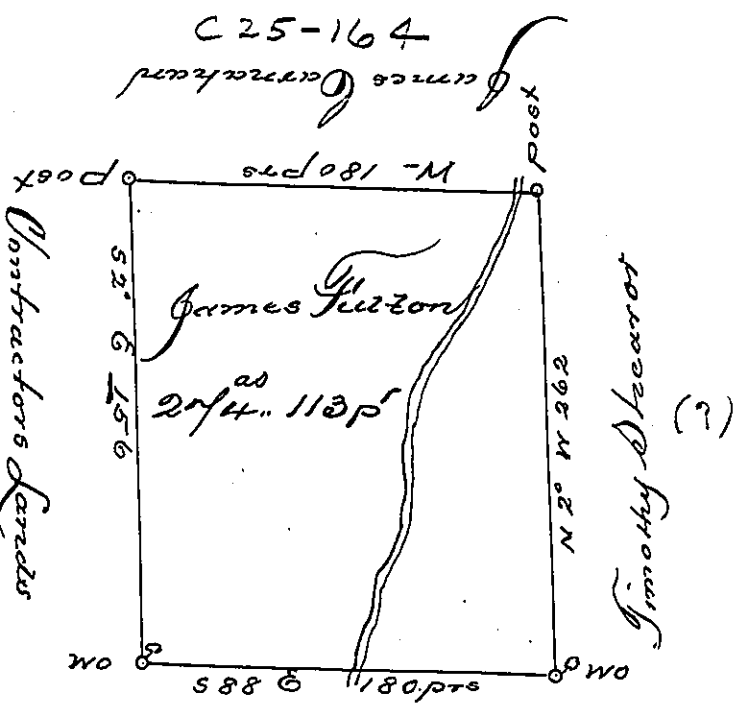 C25-164
James Carnahan
post
post
W- 180 prs
Contractors Lands
S2° E 156
James Fulton
274.. as 113 pr
N 2° W 262
Timothy Shearor
(?)
WO
WO
S88 E 180.prs